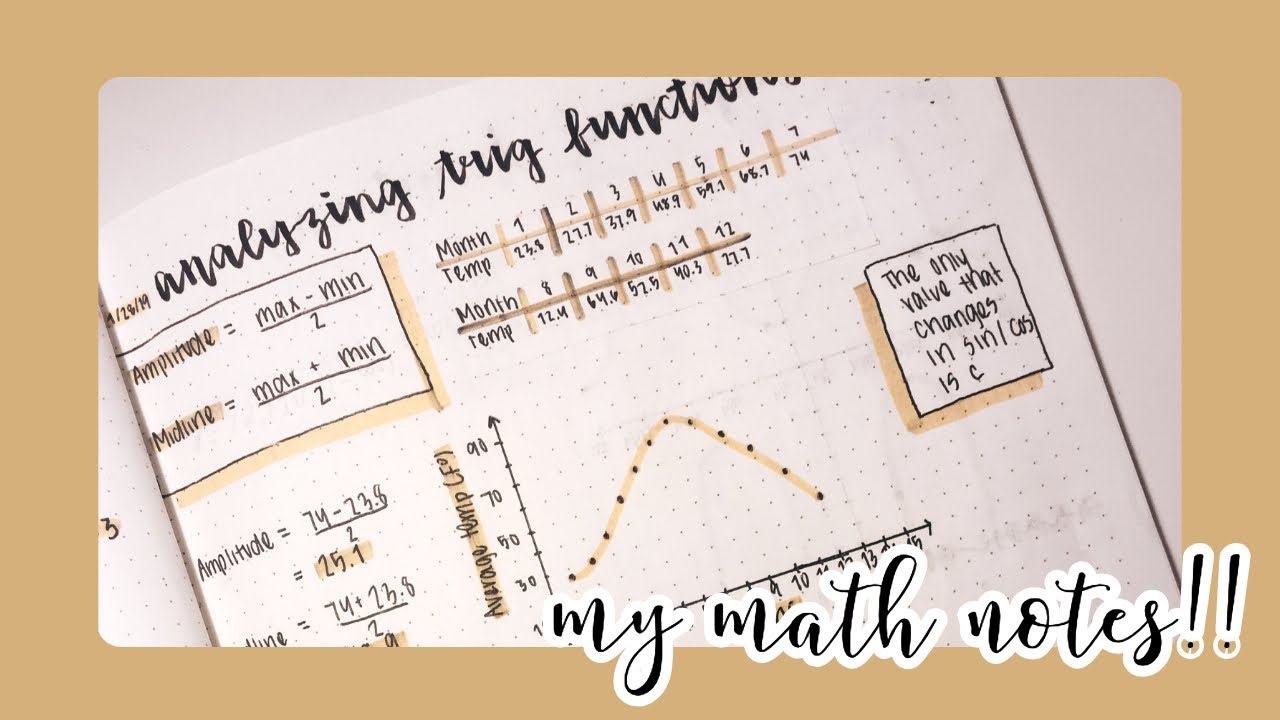 analyzing trig functions
Month 1 2 3 4 5 6 7
Temp 23.8 27.7 37.9 48.9 59.1 68.7 74
Month 8 9 10 11 12
Temp 72.4 64.6 52.5 40.3 27.7
/28/19
Amplitude = max - min
2
Midline = max + min
2
The only
value that
changes
in sin/cos
is c
Amplitude = 74 - 23.8
2
= 25.1
= 74 + 23.8
2
3
Average temp (F°)
90
70
50
30
9 10 11 12 13 14 15
my math notes!!